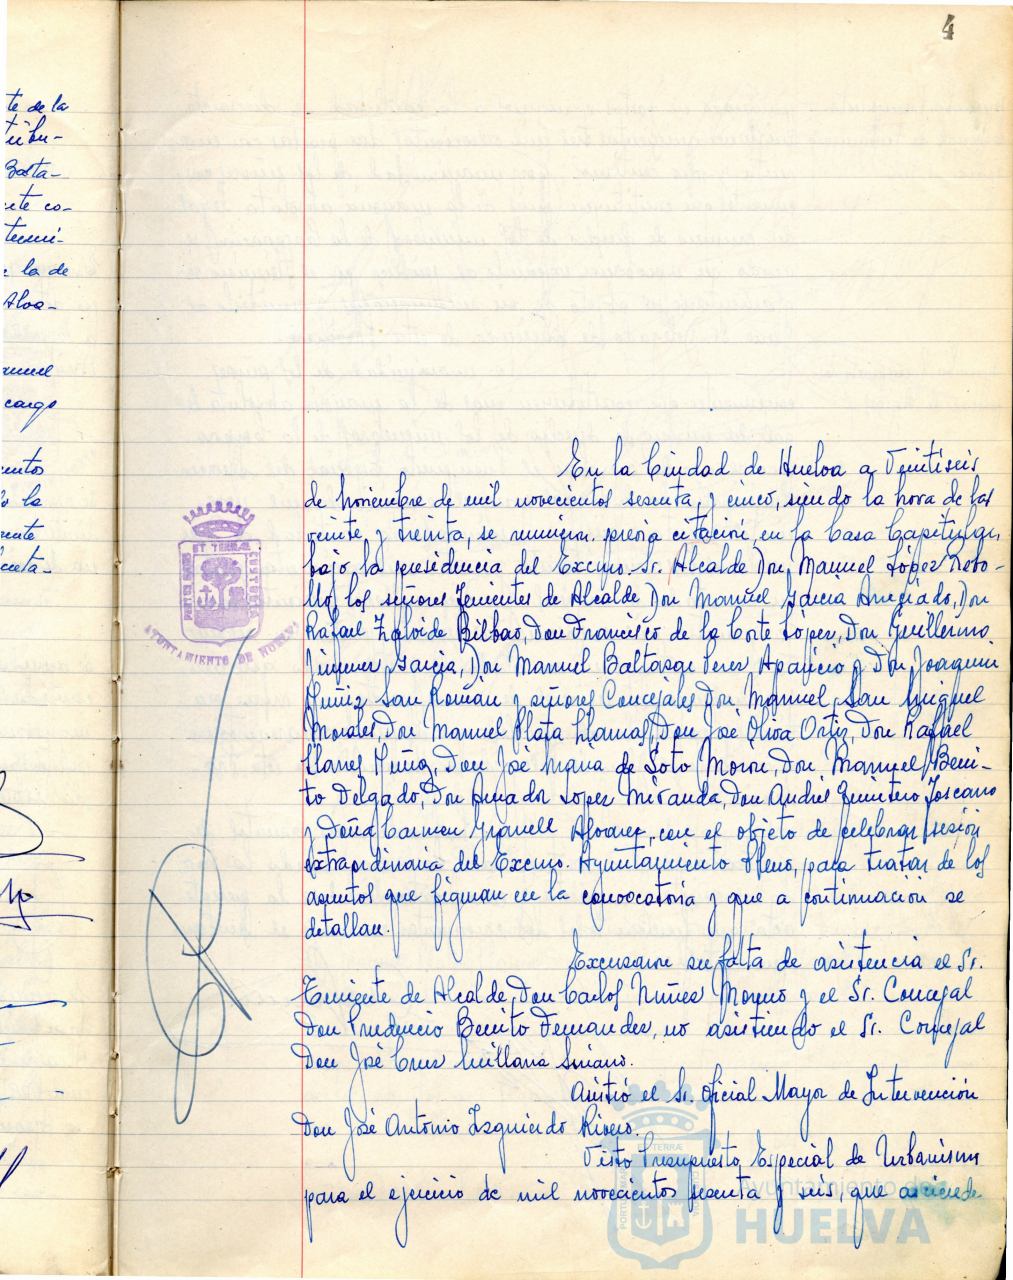 4
te de la
tribu-
Basta-
nte co-
e la de
cargo
entos
o la
ente
En la Ciudad de Huelva a Veintiseis
de noviembre de mil novecientos sesenta y cinco, siendo la hora de las
veinte y treinta, se reunieron previa citación, en la Casa Capitular,
bajo la presidencia del Excmo. Sr. Alcalde Don Manuel López Rebo-
llo, los señores Tenientes de Alcalde Don Manuel García Don
Rafael Bilbao, Don Francisco de la Corte López, Don Guillermo
Jimenez García, Don Manuel Baltasar Perez Aparicio y Don Joaquin
Muñiz San Román y señores Concejales Don Manuel San Miguel
Morales, Don Manuel Plata Llamas, Don José Oliva Ortiz, Don Rafael
Llanes Muñoz, Don José Maria de Soto Morón, Don Manuel Beni-
to Delgado, Don Amador López Miranda, Don Andrés Quintero Toscano
y Doña Carmen Alvarez, con el objeto de celebrar sesión
extraordinaria del Excmo. Ayuntamiento Pleno, para tratar de los
asuntos que figuran en la convocatoria y que a continuación se
detallan.
Excusaron su falta de asistencia el Sr.
Teniente de Alcalde, Don Carlos Nuñez Moreno y el Sr. Concejal
Don Prudencio Benito Fernandez, no asistiendo el Sr. Concejal
Don José Cruz
Asistió el Sr. Oficial Mayor de Intervención
Don José Antonio Izquierdo Rivero.
Visto Presupuesto Especial de Urbanismo
para el ejercicio de mil novecientos sesenta y seis, que asciende
AYUNTAMIENTO DE HUELVA
PORTUS MARIS ET TERRÆ CUSTODIA
Ayuntamiento de
HUELVA